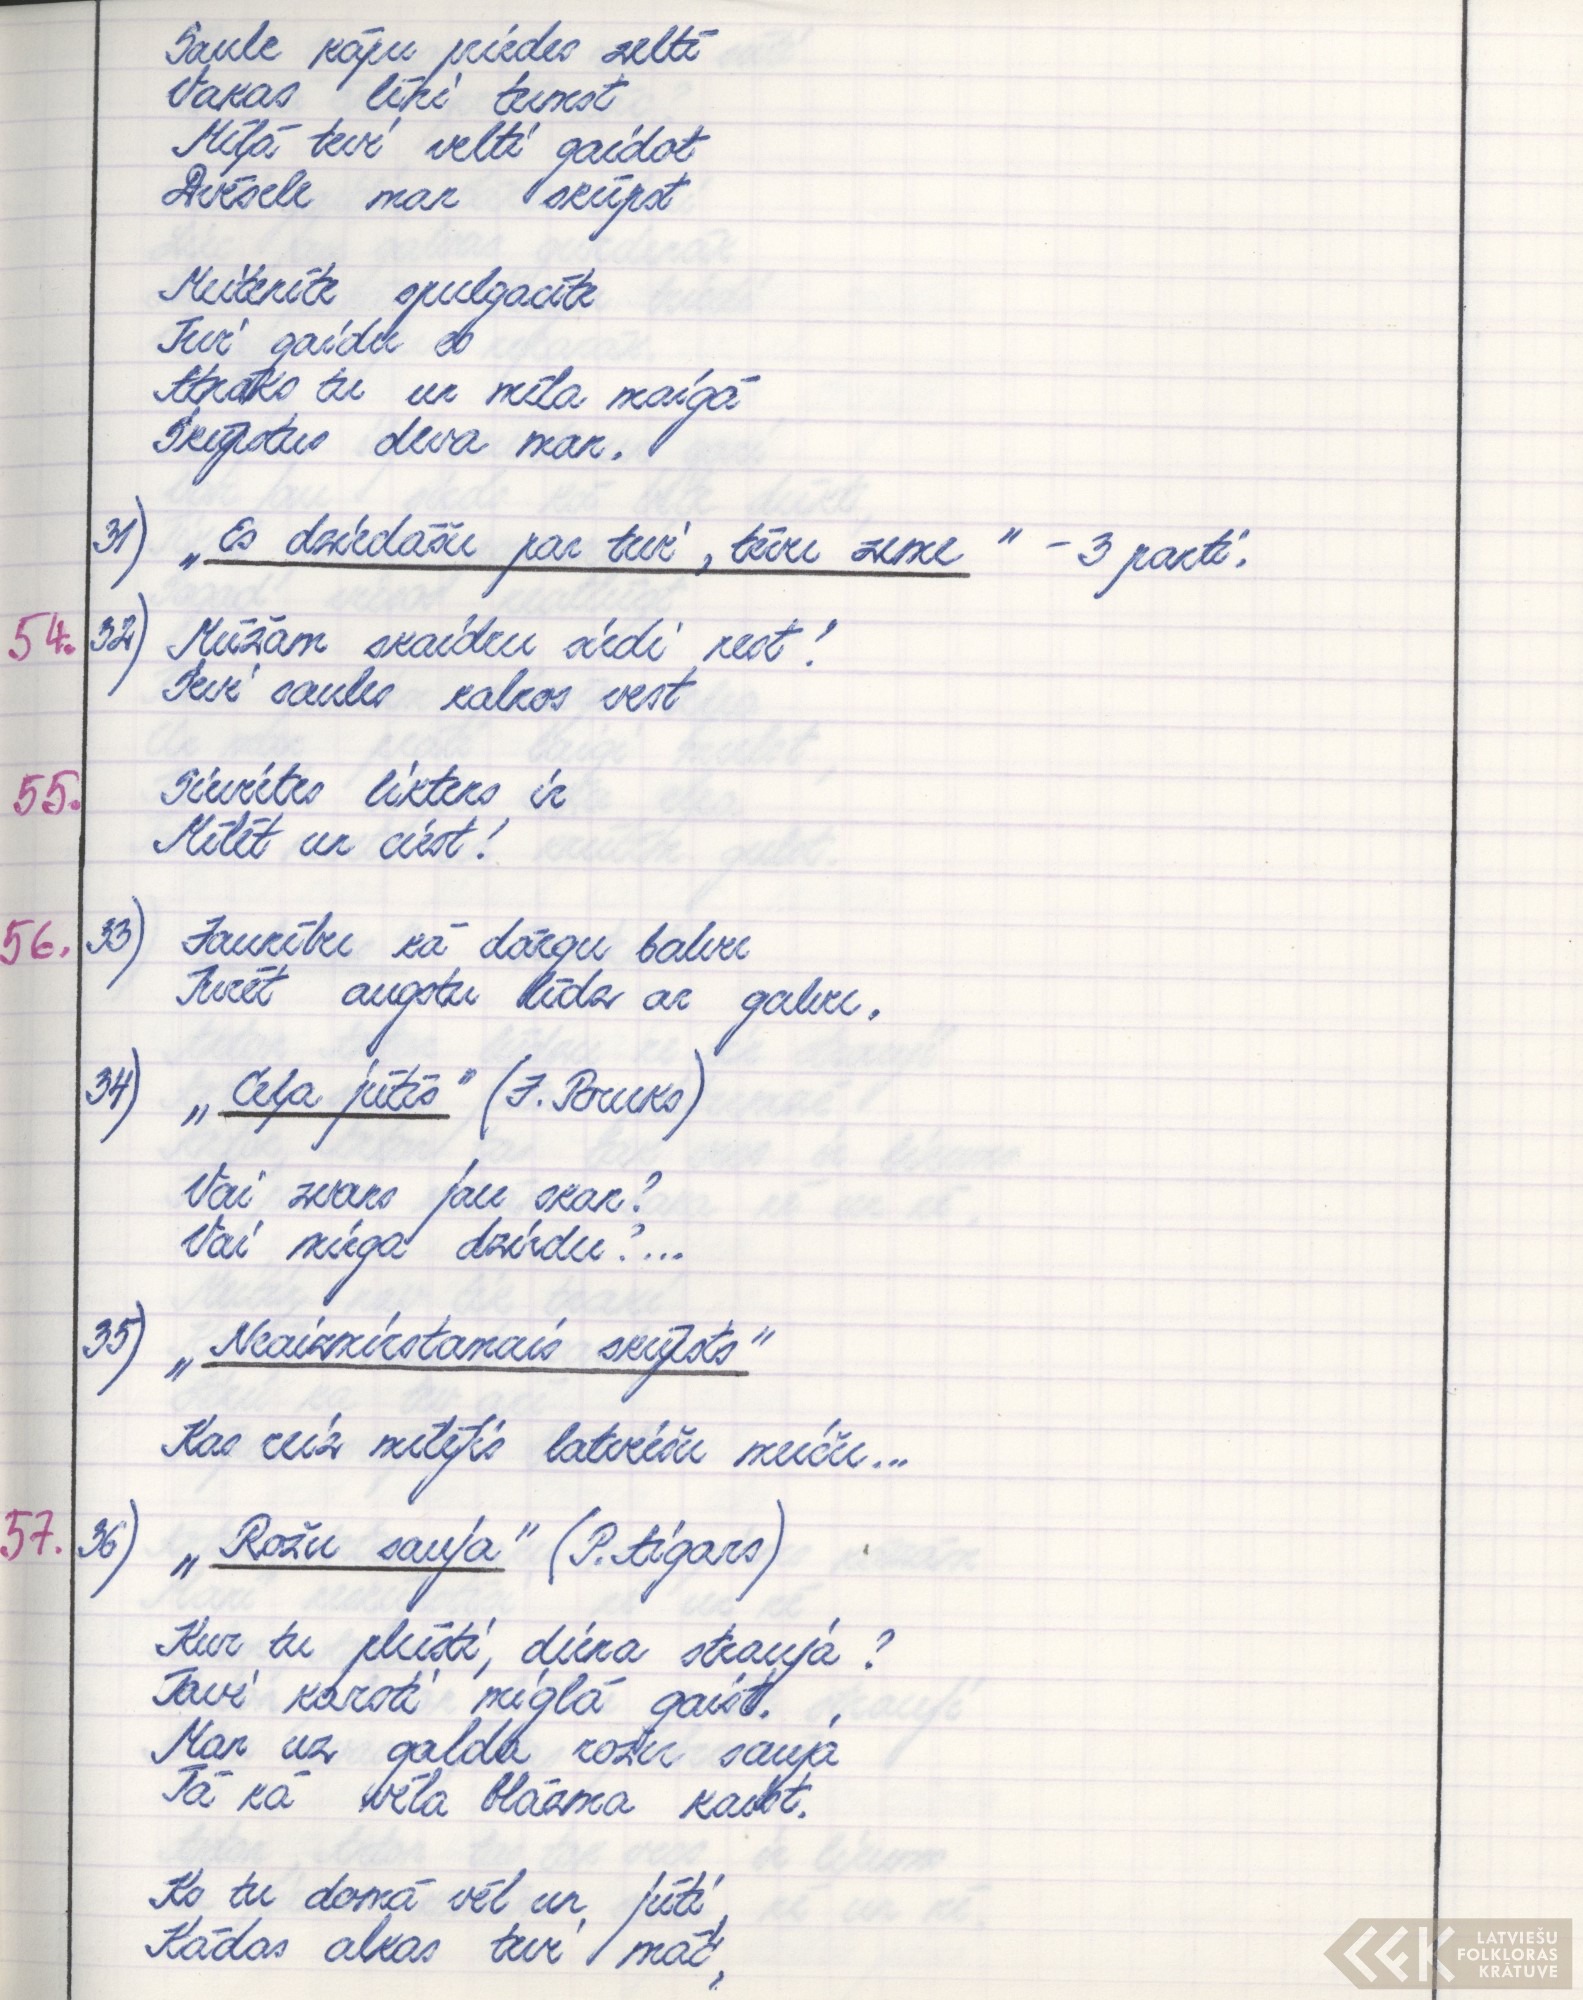 Saule kāpu priedes zeltī
Vakas līķi tumst
Mīļā tevi velti gaidot
Dvēsele man skūpst

Meitenīte spulgacīte
Tevi gaidu es
tu un mīla maigā
Skūpstus deva man.

31) „Es dziedāšu par tevi, tēvu zeme" - 3 panti.
54. 32) Mūžam skaidru sirdi nest!
Tevi saules kalnos vest

55. Sievietes liktens ir
Mīlēt un ciest!

56. 33) Jaunību kā dārgu balvu
Turēt augstu līdz ar galvu.

34) „Ceļa jūtīs" (J. Poruks)

Vai zvans jau skan?
Vai miegā dzirdu?...

35) „Neaizmirstamais skūpsts"

Kas reiz mīlējis latviešu meiču...

57. 36) „Rožu sauja" (P. Aigars)

Kur tu plūsti, diena straujā?
Tavi karsti miglā gaist.
Man uz galda rožu saujā
Tā kā vēla blāzma kaist.

Ko tu domā vēl un jūti,
Kādas alkas tevi māc,
LATVIEŠU
FOLKLORAS
KRĀTUVE